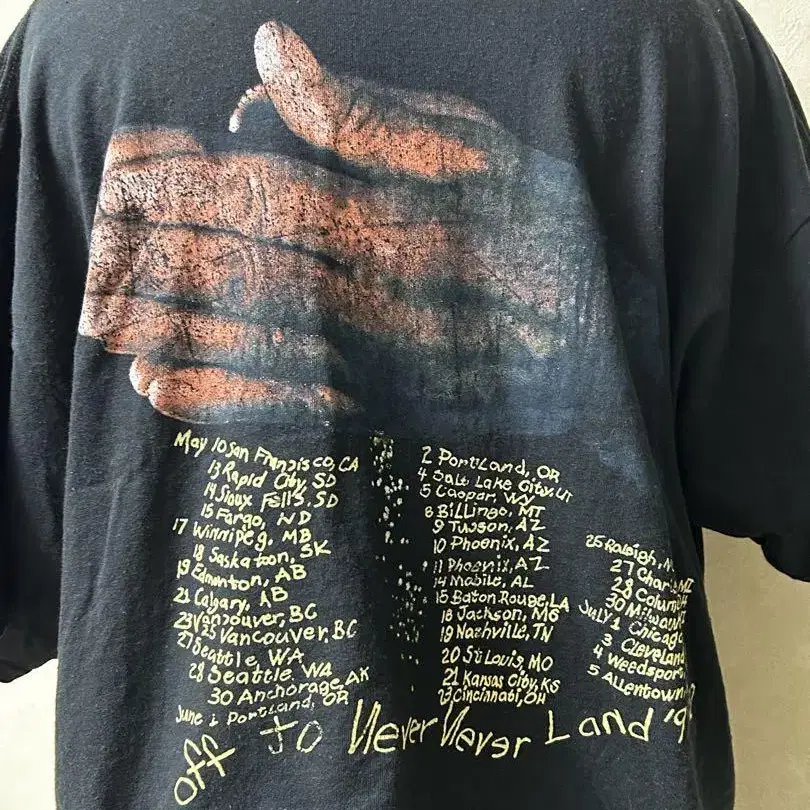 May 10 San Franzisco, CA
13 Rapid City, SD
14 Sioux Falls, SD
15 Fargo, ND
17 Winnipeg, MB
18 Saskatoon, SK
19 Edmonton, AB
21 Calgary, AB
23 Vancouver, BC
25 Vancouver, BC
27 Seattle, WA
28 Seattle, WA
30 Anchorage, AK
June 1 Portland, OR
2 Portland, OR
4 Salt Lake City, UT
5 Casper, WY
8 Billings, MT
9 Tucson, AZ
10 Phoenix, AZ
11 Phoenix, AZ
14 Mobile, AL
15 Baton Rouge, LA
18 Jackson, MS
19 Nashville, TN
20 St Louis, MO
21 Kansas City, KS
23 Cincinnati, OH
25 Raleigh, N
27 Charl
28 Colum
30 Milwauk
July 1 Chicago
3 Cleveland
4 Weedsport
5 Allentown
Off to Never Never Land '9